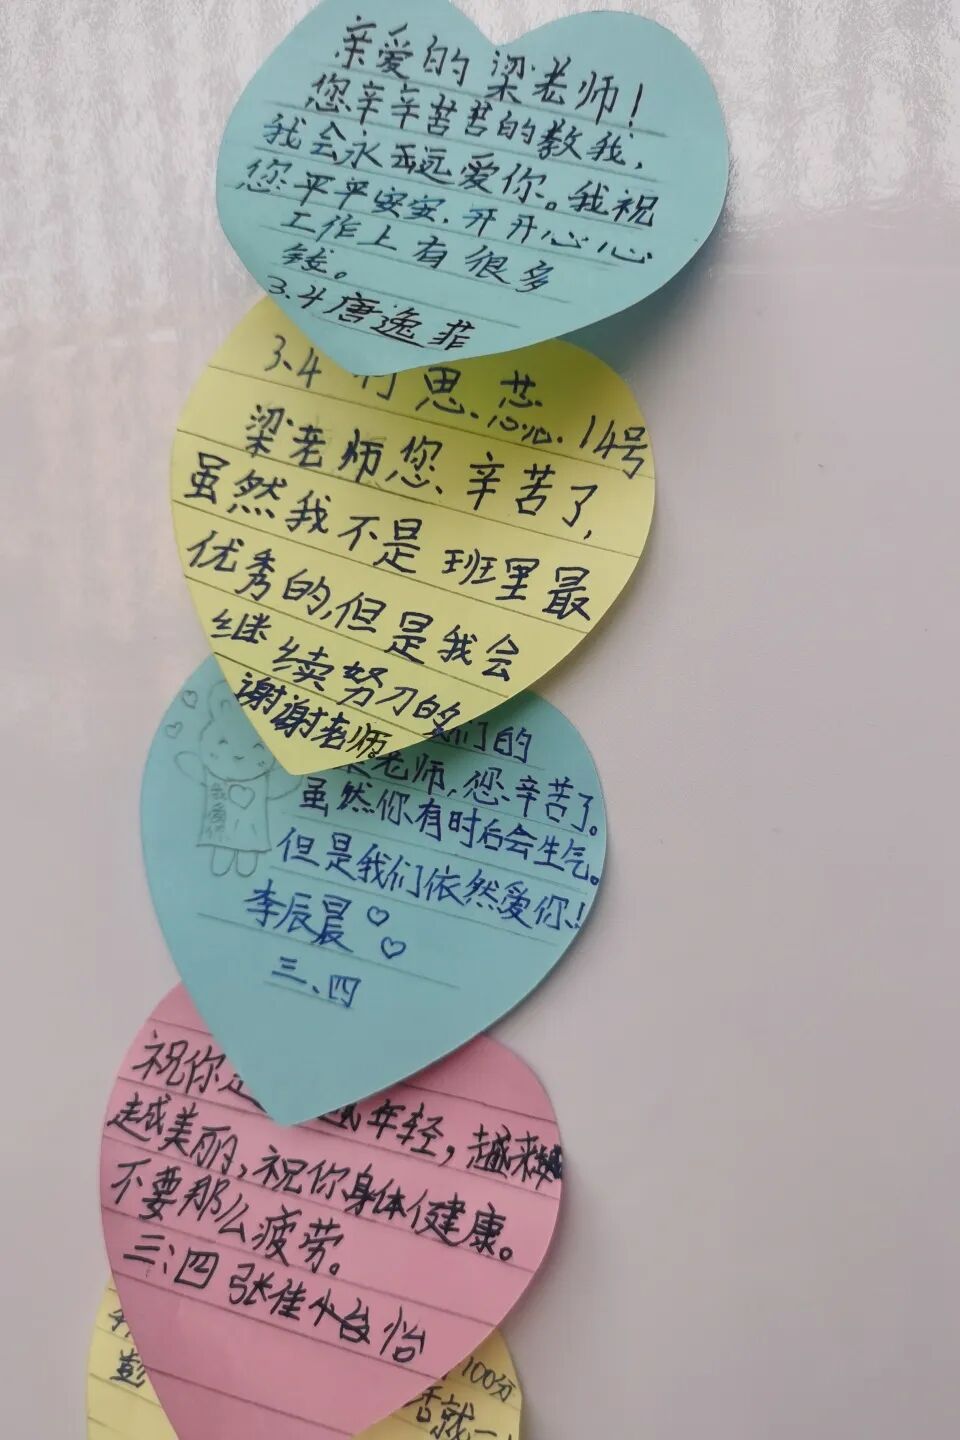 亲爱的梁老师！
您辛辛苦苦的教我，
我会永远爱你。我祝
您平平安安.开开心心
工作上有很多
钱。
3.4唐逸菲
3.4 思.蕊.14号
梁老师您辛苦了，
虽然我不是班里最
优秀的,但是我会
继续努力的
谢谢老师。
们的
老师,您辛苦了。
虽然你有时后会生气。
但是我们依然爱你!
我爱你
李辰晨♡♡
三、四
祝你 年轻，越来
越美丽,祝你身体健康。
不要那么疲劳。
三;四张佳怡
100分
彭 就一